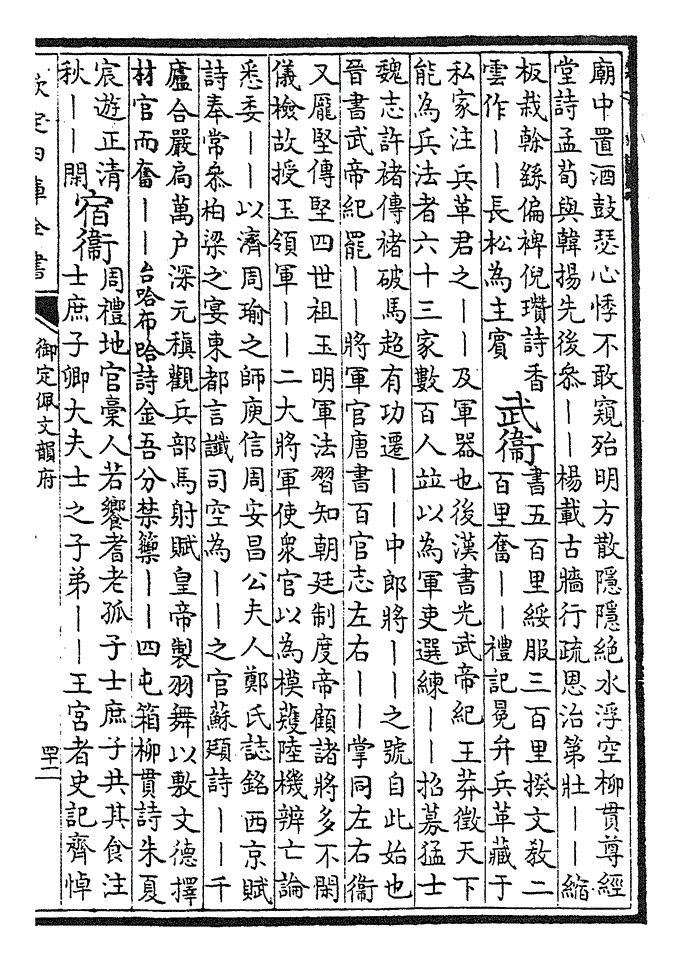 廟中置酒鼓瑟心悸不敢窺殆明方散隱隱絶水浮空柳貫尊經
堂詩孟荀與韓揚先後叅——楊載古牆行疏恩治第壯——縮
板栽榦繇偏裨倪瓚詩香
雲作——長松為主賓
武衛
書五百里綏服三百里揆文教二
百里奮——禮記冕弁兵革藏于
私家注兵革君之——及軍器也後漢書光武帝紀王莽徵天下
能為兵法者六十三家數百人竝以為軍吏選練——招募猛士
魏志許褚傳褚破馬超有功遷——中郎將——之號自此始也
晉書武帝紀罷——將軍官唐書百官志左右——掌同左右衛
又龐堅傳堅四世祖玉明軍法習知朝廷制度帝顧諸將多不閑
儀檢故授玉領軍——二大將軍使衆官以為模蒦陸機辨亡論
悉委——以濟周瑜之師庾信周安昌公夫人鄭氏誌銘西京賦
詩奉常叅柏梁之宴東都言讖司空為——之官蘇頲詩——千
廬合嚴扃萬户深元稹觀兵部馬射賦皇帝製羽舞以敷文德擇
材官而奮——台哈布哈詩金吾分禁籞——四屯箱柳貫詩朱夏
宸遊正清
秋——閑
宿衛
周禮地官稾人若饗耆老孤子士庶子共其食注
士庶子卿大夫士之子弟——王宮者史記齊悼
欽定四庫全書
御定佩文韻府
四十二